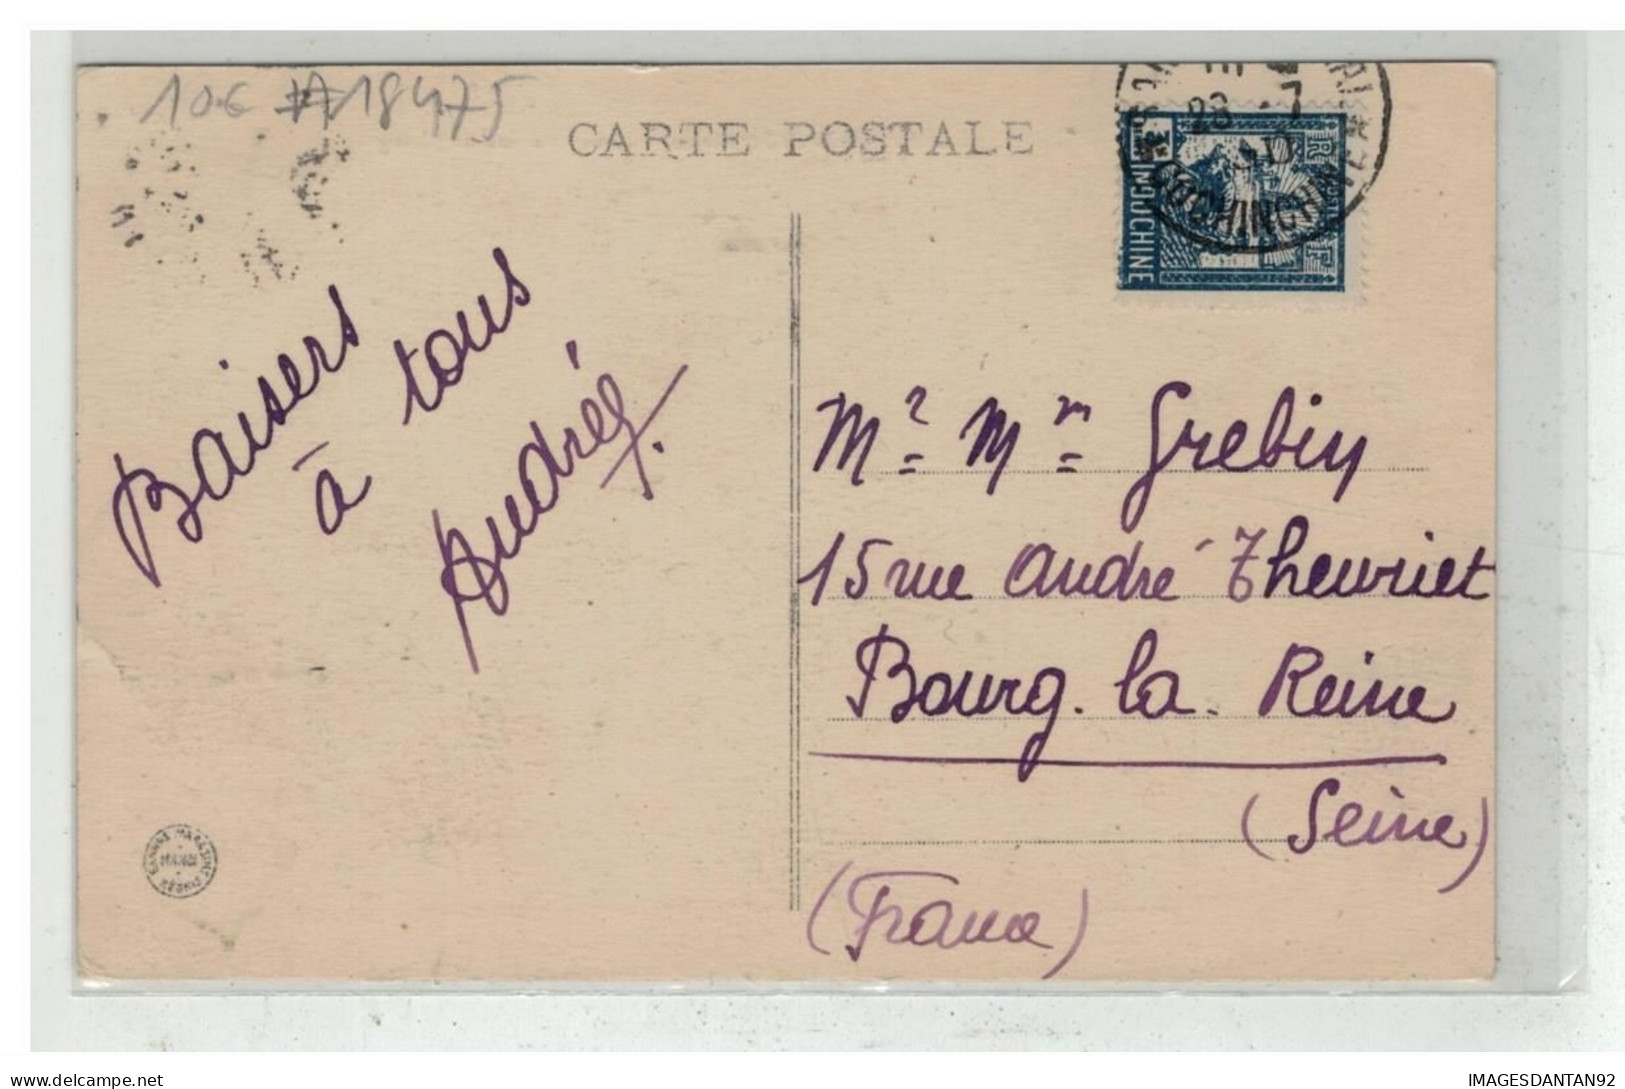 10€ A18475
CARTE POSTALE
28 -7
30
COCHINCHINE
INDOCHINE
RF
Baisers
à tous
Andrée
Mr Mm Grebin
15 rue André Theuriet
Bourg. la. Reine
(Seine)
(France)
delcampe.net
IMAGESDANTAN92